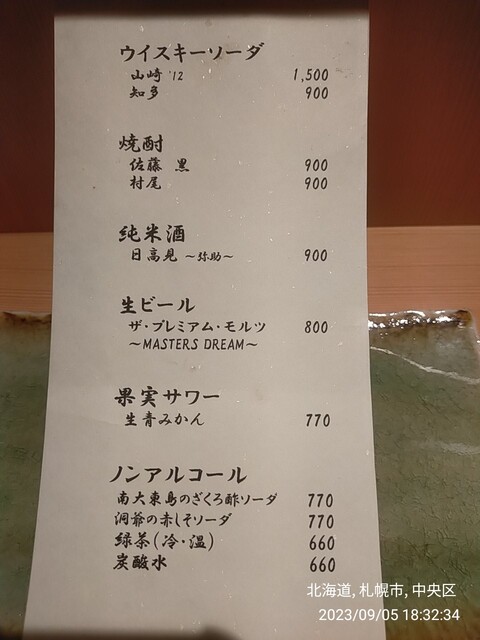 ウイスキーソーダ
山崎 '12 1,500
知多 900
焼酎
佐藤 黒 900
村尾 900
純米酒
日高見 ～弥助～ 900
生ビール
ザ・プレミアム・モルツ 800
～MASTERS DREAM～
果実サワー
生青みかん 770
ノンアルコール
南大東島のざくろ酢ソーダ 770
洞爺の赤しそソーダ 770
緑茶(冷・温) 660
炭酸水 660
北海道, 札幌市, 中央区
2023/09/05 18:32:34